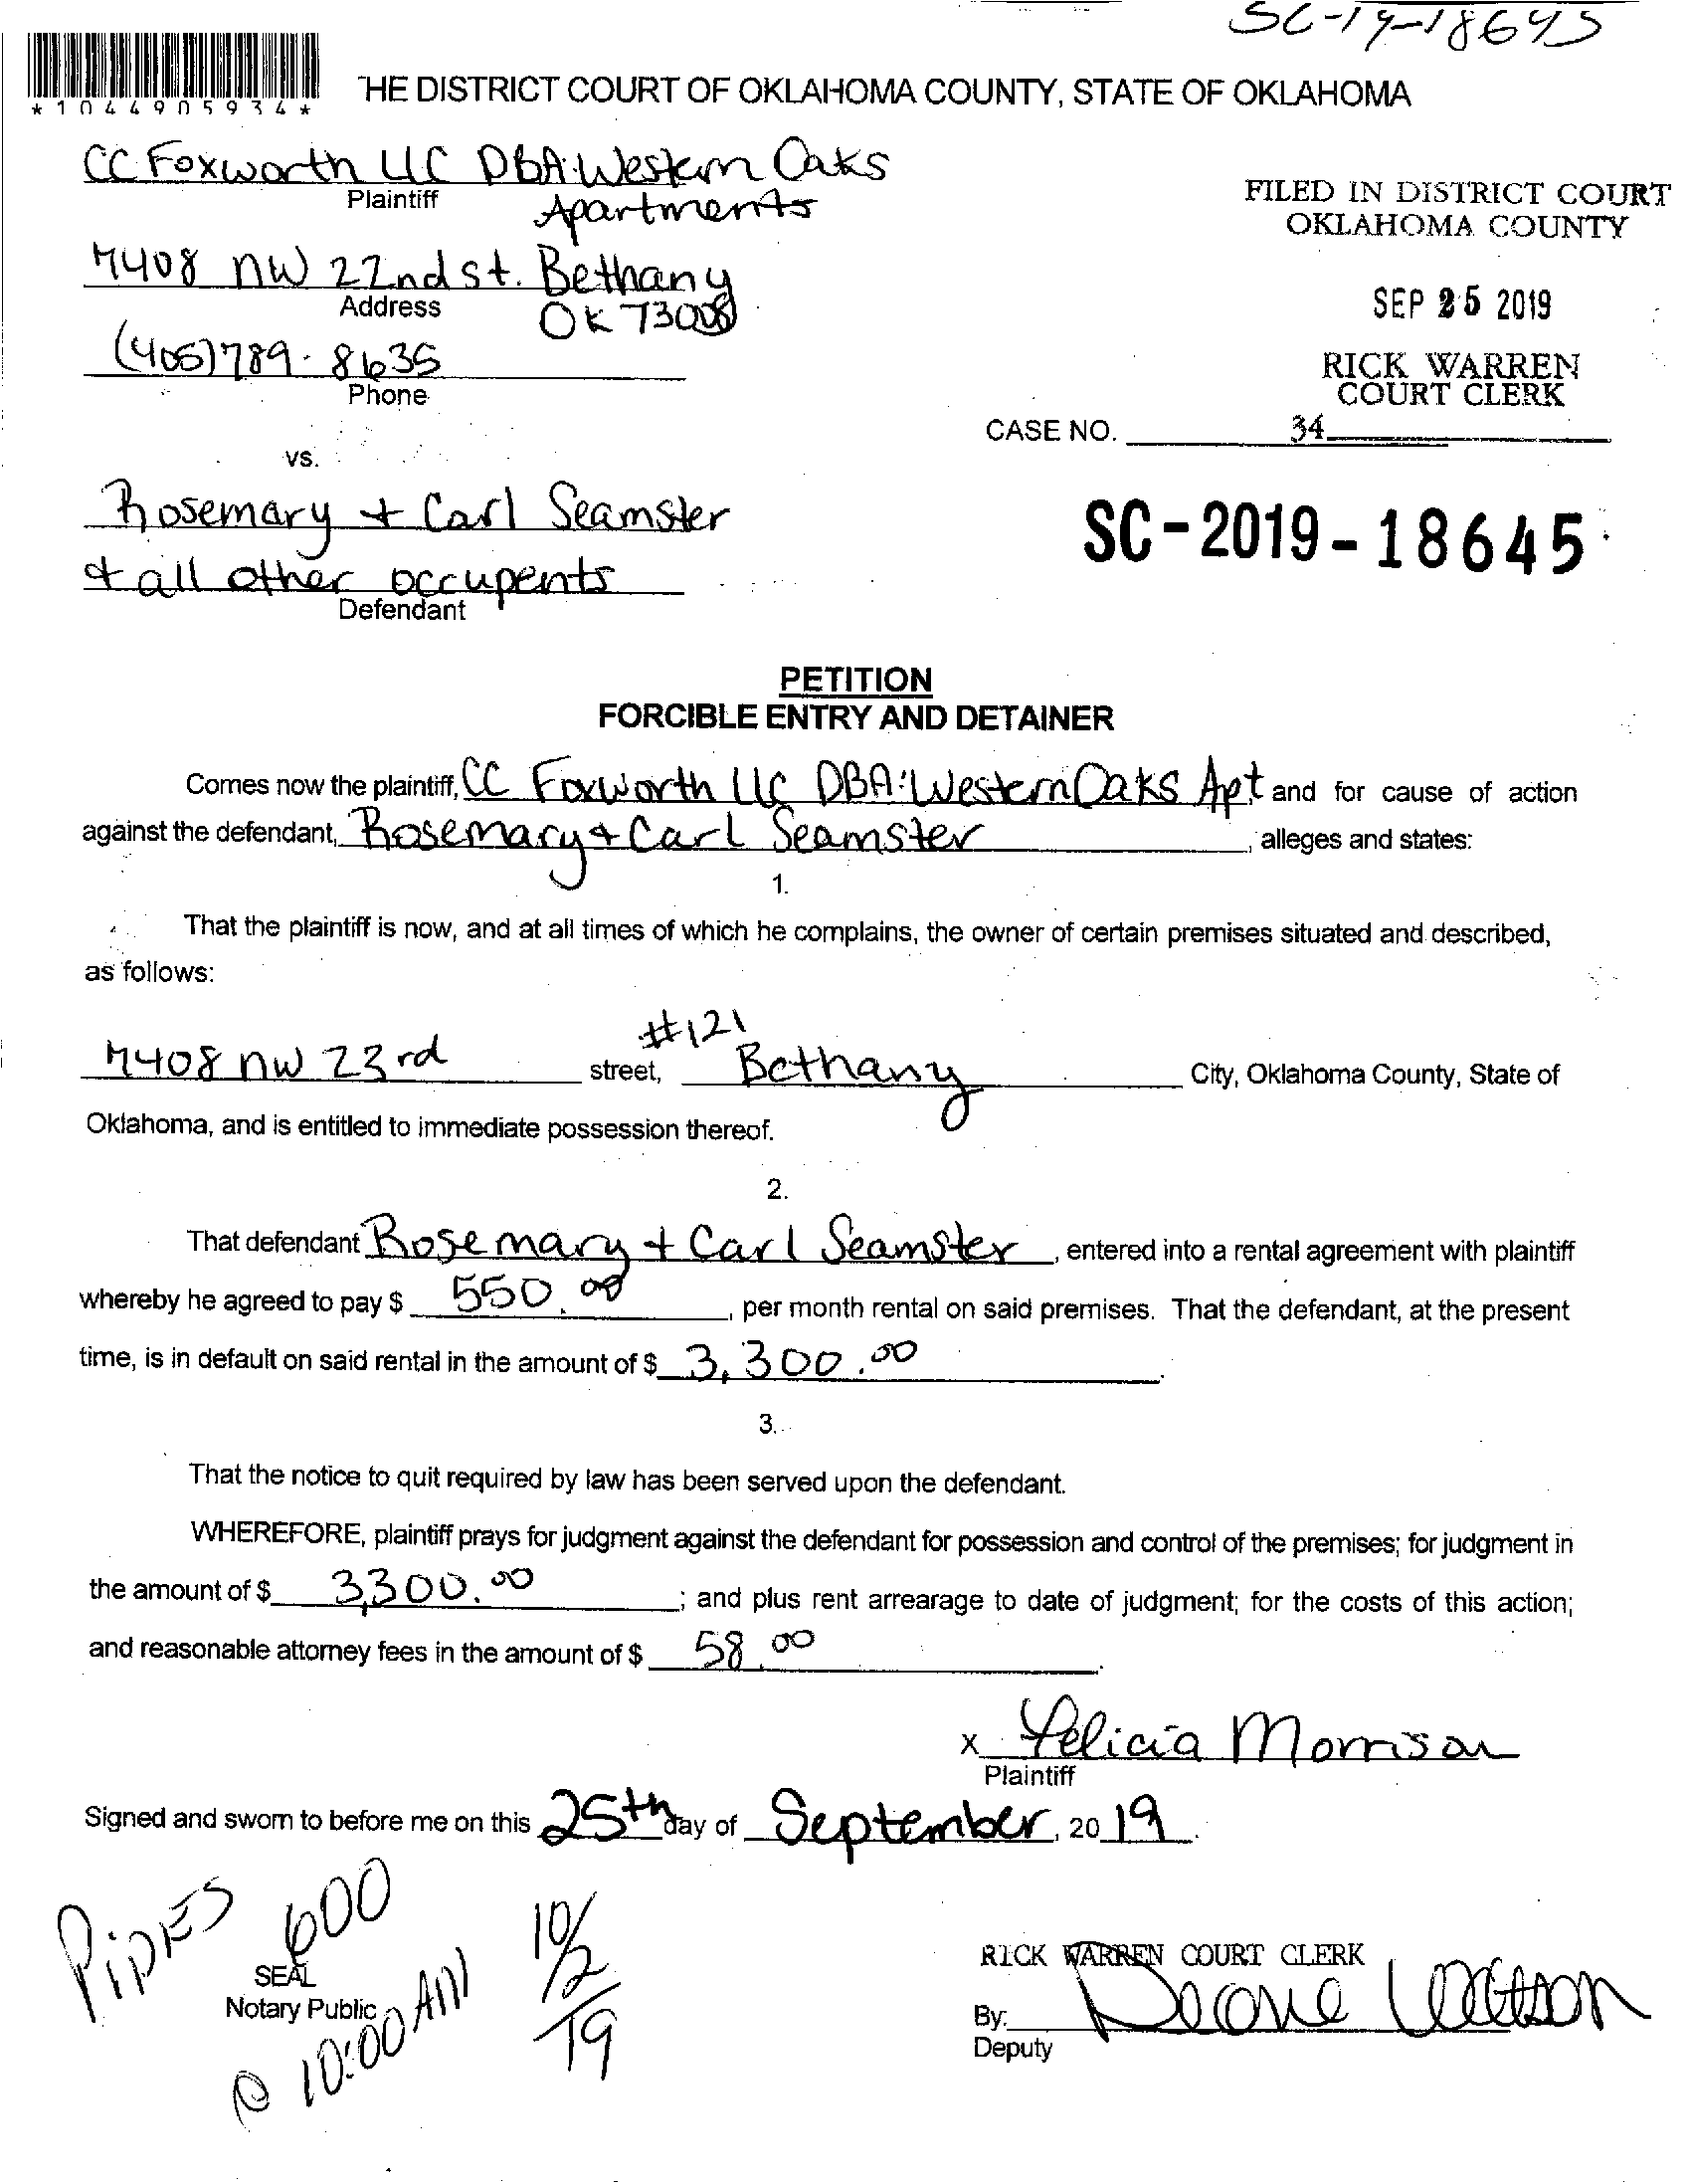 SC-19-18645
*1044905934*
THE DISTRICT COURT OF OKLAHOMA COUNTY, STATE OF OKLAHOMA
CC Foxworth LLC DBA: Western Oaks
Plaintiff
Apartments
FILED IN DISTRICT COURT
OKLAHOMA COUNTY
7408 NW 22nd St. Bethany
Address
OK 73008
SEP 25 2019
(405)789-8635
Phone
RICK WARREN
COURT CLERK
CASE NO. 34
vs.
Rosemary + Carl Seamster
SC-2019-18645
+ all other occupents
Defendant
PETITION
FORCIBLE ENTRY AND DETAINER
Comes now the plaintiff, CC Foxworth LLC DBA: Western Oaks Apt and for cause of action
against the defendant, Rosemary + Carl Seamster, alleges and states:
1.
That the plaintiff is now, and at all times of which he complains, the owner of certain premises situated and described,
as follows:
#121
7408 NW 23rd street, Bethany City, Oklahoma County, State of
Oklahoma, and is entitled to immediate possession thereof.
2.
That defendant Rosemary + Carl Seamster, entered into a rental agreement with plaintiff
whereby he agreed to pay $ 550.00, per month rental on said premises. That the defendant, at the present
time, is in default on said rental in the amount of $ 3,300.00.
3.
That the notice to quit required by law has been served upon the defendant.
WHEREFORE, plaintiff prays for judgment against the defendant for possession and control of the premises; for judgment in
the amount of $ 3,300.00; and plus rent arrearage to date of judgment; for the costs of this action;
and reasonable attorney fees in the amount of $ 58.00.
x Felicia Morrison
Plaintiff
Signed and sworn to before me on this 25th day of September, 2019.
Pipes 600
10/2/19
SEAL
Notary Public
@ 10:00 AM
RICK WARREN COURT CLERK
By:
Deputy